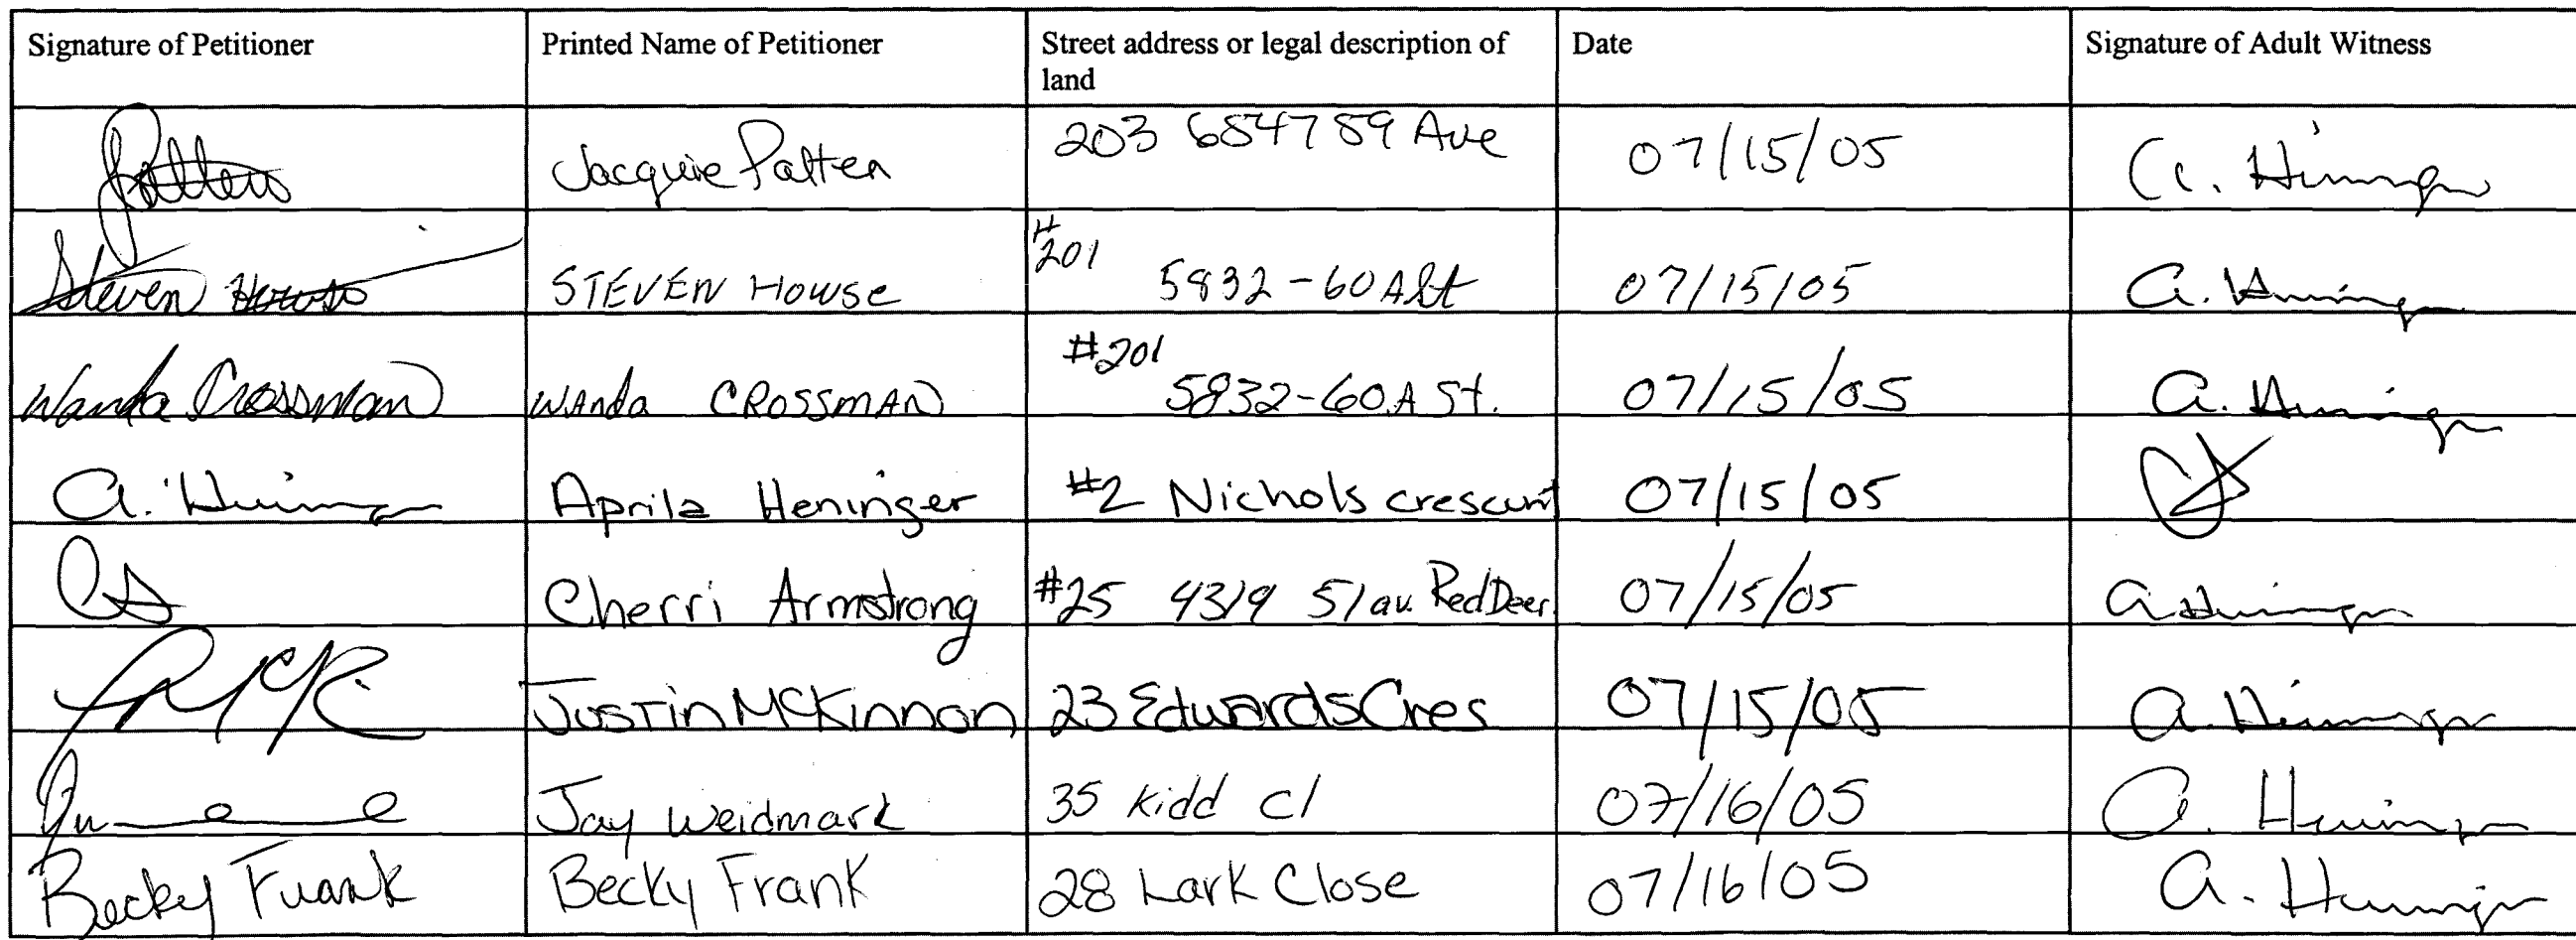 Signature of Petitioner Printed Name of Petitioner Street address or legal description of land Date Signature of Adult Witness
Patten Jacquie Patten 203 6847 59 Ave 07/15/05 A. Heninger
Steven Howse STEVEN HOWSE #201 5832-60 A St 07/15/05 A. Heninger
Wanda Crossman WANda CROSSMAN #201 5832-60 A St. 07/15/05 A. Heninger
A. Heninger Aprila Heninger #2 Nichols crescent 07/15/05
CA Cherri Armstrong #25 4319 51 av. Red Deer. 07/15/05 A. Heninger
JMcK Justin McKinnon 23 Edwards Cres 07/15/05 A. Heninger
Jay Weidmark 35 Kidd Cl 07/16/05 A. Heninger
Becky Frank Becky Frank 28 Lark Close 07/16/05 A. Heninger